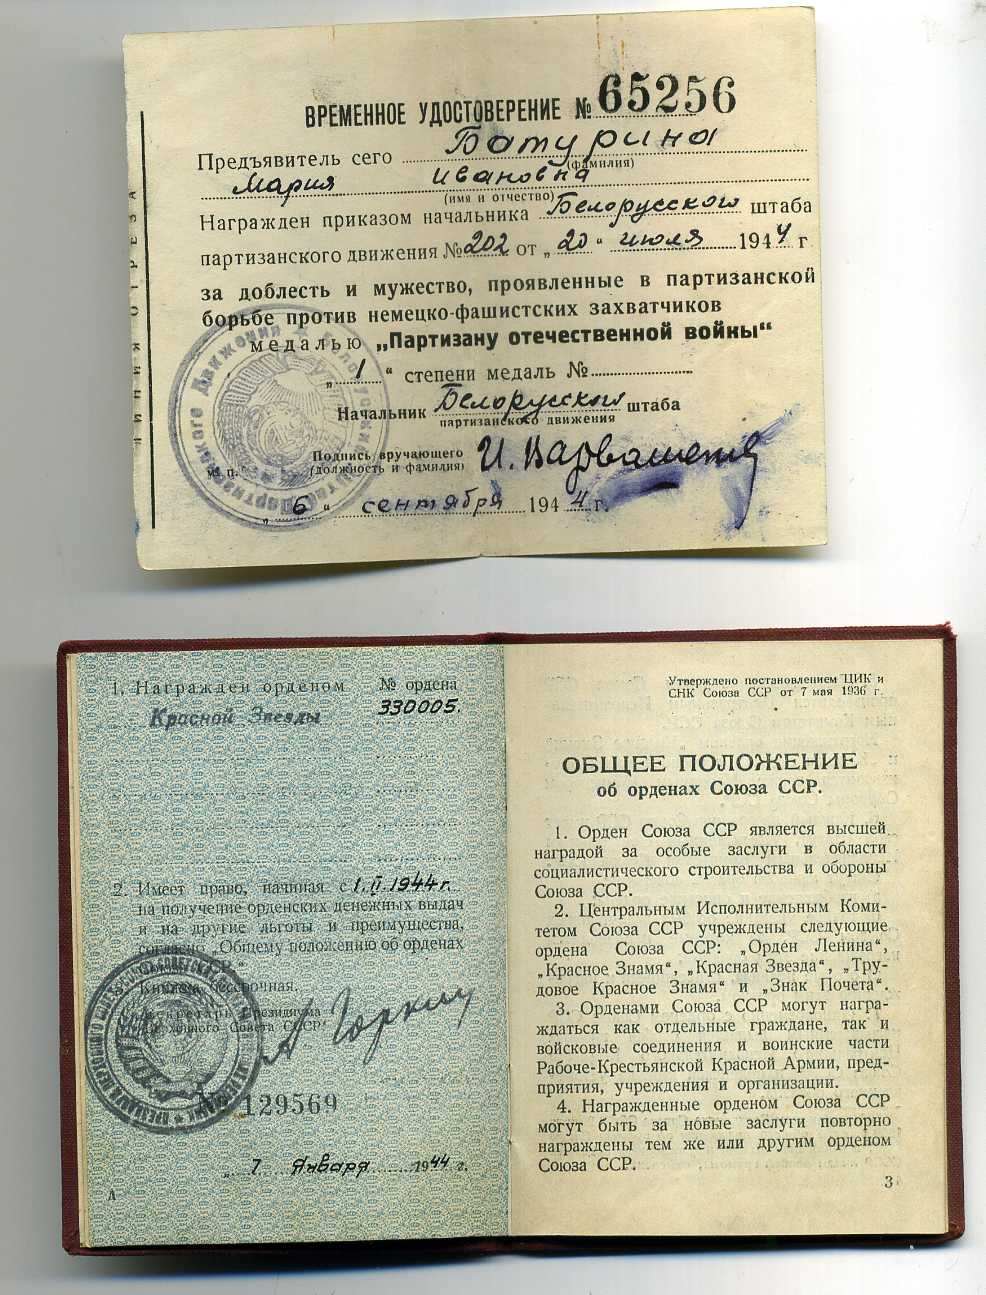 ВРЕМЕННОЕ УДОСТОВЕРЕНИЕ № 65256
Предъявитель сего Батурина
(фамилия)
Мария Ивановна
(имя и отчество)
Награжден приказом начальника Белорусского штаба
партизанского движения № 202 от „20“ июля 1944 г
за доблесть и мужество, проявленные в партизанской
борьбе против немецко-фашистских захватчиков
медалью „Партизану отечественной войны“
„1“ степени медаль №
Начальник Белорусского штаба
партизанского движения
Подпись вручающего
(должность и фамилия)
м. п.
„6“ сентября 1944 г.
ЛИНИЯ ОТРЕЗА
1. Награжден орденом № ордена
Красной Звезды 330005.
2. Имеет право, начиная с 1.II.1944г.
на получение орденских денежных выдач
и на другие льготы и преимущества,
согласно „Общему положению об орденах
Книжка бессрочная.
Секретарь Президиума
Верховного Совета СССР
А Горкин
№ 129569
„7 января 1944 г.
Утверждено постановлением ЦИК и
СНК Союза ССР от 7 мая 1936 г.
ОБЩЕЕ ПОЛОЖЕНИЕ
об орденах Союза ССР.
1. Орден Союза ССР является высшей
наградой за особые заслуги в области
социалистического строительства и обороны
Союза ССР.
2. Центральным Исполнительным Коми-
тетом Союза ССР учреждены следующие
ордена Союза ССР: „Орден Ленина“,
„Красное Знамя“, „Красная Звезда“, „Тру-
довое Красное Знамя“ и „Знак Почета“.
3. Орденами Союза ССР могут награ-
ждаться как отдельные граждане, так и
войсковые соединения и воинские части
Рабоче-Крестьянской Красной Армии, пред-
приятия, учреждения и организации.
4. Награжденные орденом Союза ССР
могут быть за новые заслуги повторно
награждены тем же или другим орденом
Союза ССР.
3